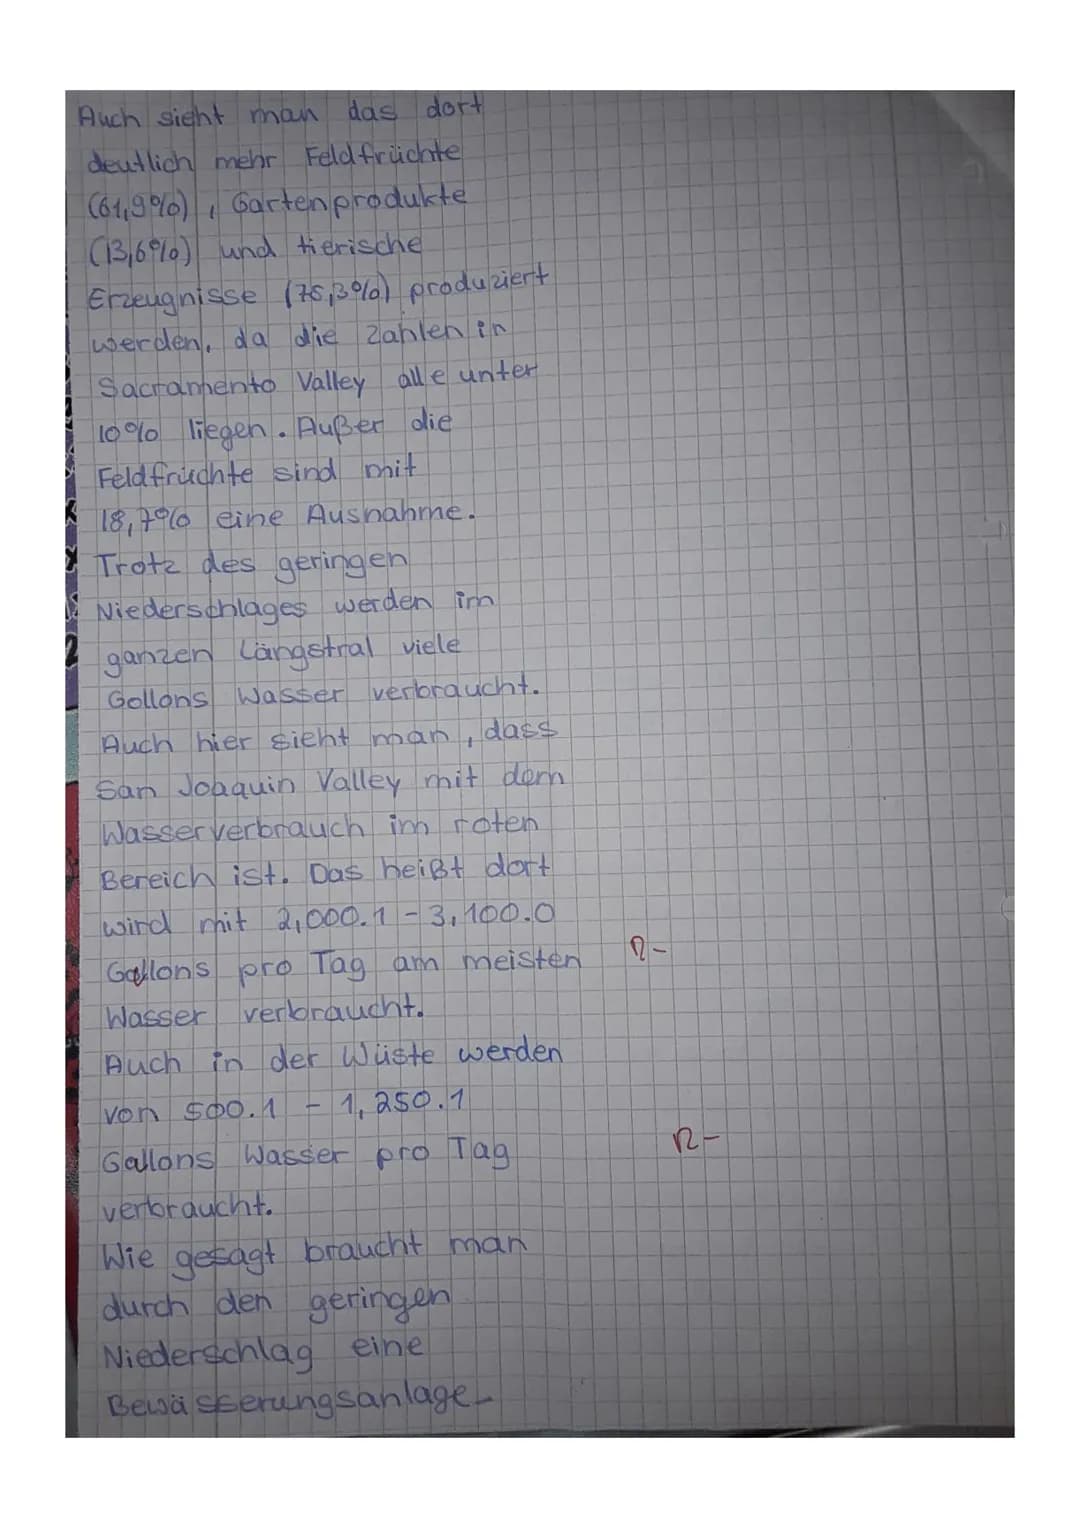 Auch sieht man das dort
deutlich mehr Feldfrüchte
(61,9%), Gartenprodukte
(13,6%) und tierische
Erzeugnisse (75,3%) produziert
werden, da die Zahlen in
Sacramento Valley alle unter
10% liegen. Außer die
Feldfrüchte sind mit
18,7% eine Ausnahme.
Trotz des geringen
Niederschlages werden im
ganzen Längstral viele
Gollons Wasser verbraucht.
Auch hier sieht man, dass
San Joaquin Valley mit dem
Wasserverbrauch im roten
Bereich ist. Das heißt dort
wird mit 2,000.1 - 3,100.0
Gallons pro Tag am meisten
Wasser verbraucht.
Auch in der Wüste werden
von 500.1 - 1,250.1
Gallons Wasser pro Tag
verbraucht.
Wie gesagt braucht man
durch den geringen
Niederschlag eine
Bewässerungsanlage